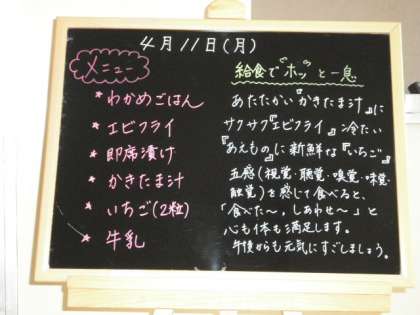 4月11日(月)
メニュー
* わかめごはん
* エビフライ
* 即席漬け
* かきたま汁
* いちご(2粒)
* 牛乳
給食で"ホッ"と一息
あたたかい『かきたま汁』に
サクサク『エビフライ』冷たい
『あえもの』に新鮮な『いちご』
五感(視覚・聴覚・嗅覚・味覚・
触覚)を感じて食べると、
「食べた〜、しあわせ〜」と
心も体も満足します。
午後からも元気にすごしましょう。